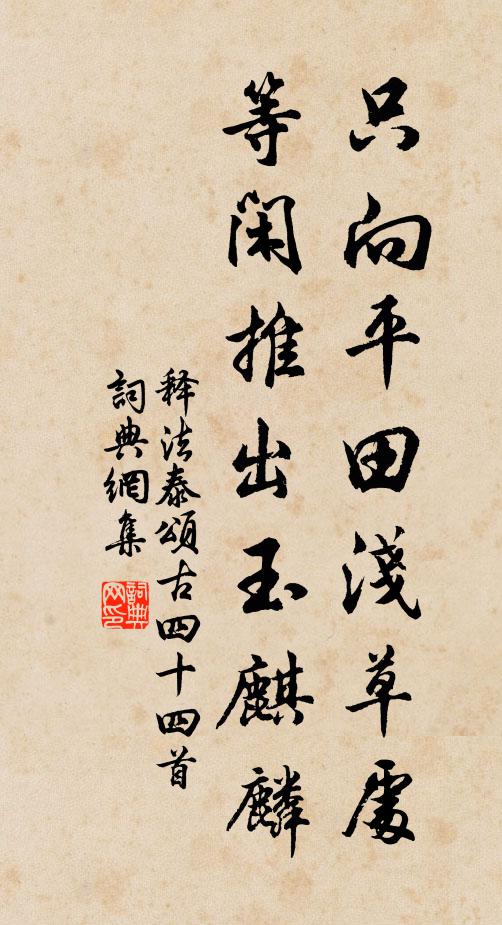 只向平田淺草處
等閑推出玉麒麟
释法泰頌古四十四首
詞典網集
詞典网印